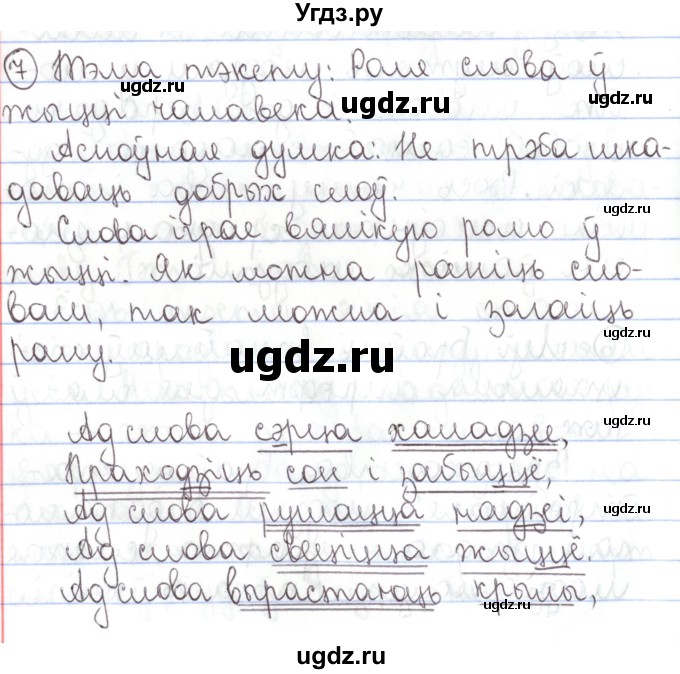 Угдз.ру
7 Тэма тэксту: Роля слова ў
жыцці чалавека.
ugdz.ru
ugdz.ru
Асноўная думка: Не трэба шка-
даваць добрых слоў.
ugdz.ru
Слова іграе вялікую ролю ў
жыцці. Як можна раніць сло-
ugdz.ru
вам, так можна і загаіць
ugdz.ru
рану.
ugdz.ru
Ад слова сэрца халадзее,
ugdz.ru
Праходзіць сон і забыццё,
Ад слова рушацца надзеі,
ugdz.ru
Ад слова свеціцца жыццё.
ugdz.ru
Ад слова вырастаюць крылы,
ugdz.ru
ugdz.ru